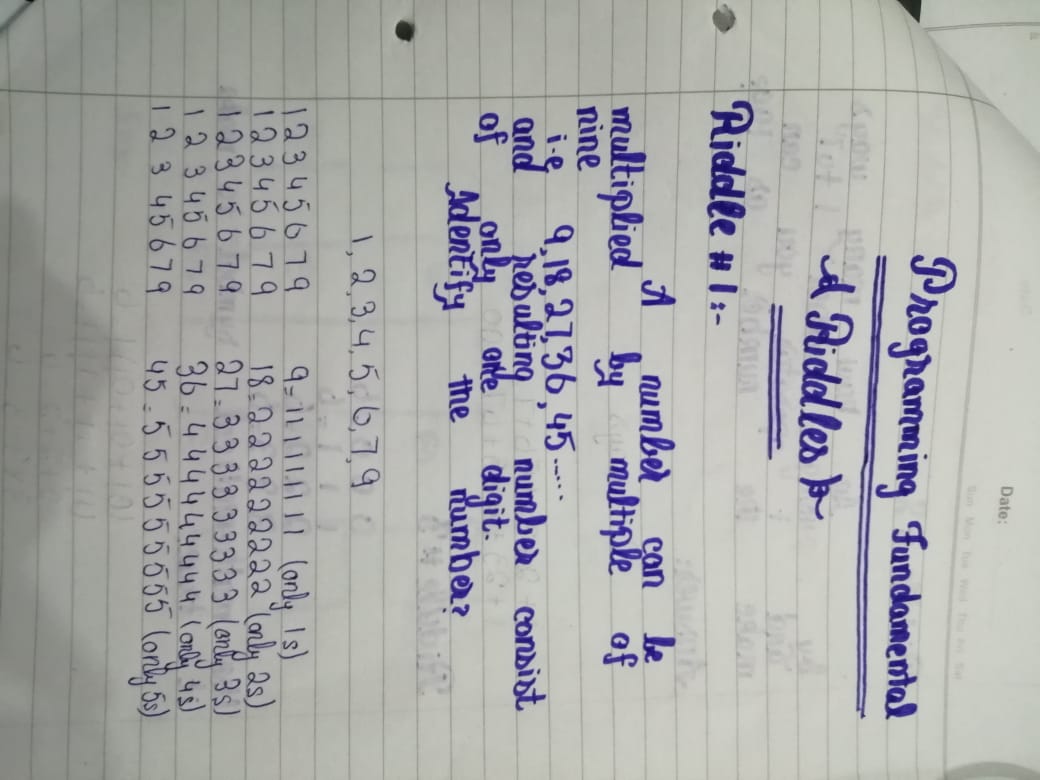 Date:
Sun Mon Tue Wed Thu Fri Sat
Programming Fundamental
Riddles
Riddle # 1 :-
A number can be
multiplied by multiple of
nine
i.e 9,18,27,36,45......
and resulting number consist
of only one digit.
Identify the number?
1, 2, 3, 4, 5, 6, 7, 9
1 2 3 4 5 6 7 9 9 = 11111111 (only 1s)
1 2 3 4 5 6 7 9 18 = 222222222 (only 2s)
1 2 3 4 5 6 7 9 27 = 333333333 (only 3s)
1 2 3 4 5 6 7 9 36 = 444444444 (only 4s)
1 2 3 4 5 6 7 9 45 = 555555555 (only 5s)